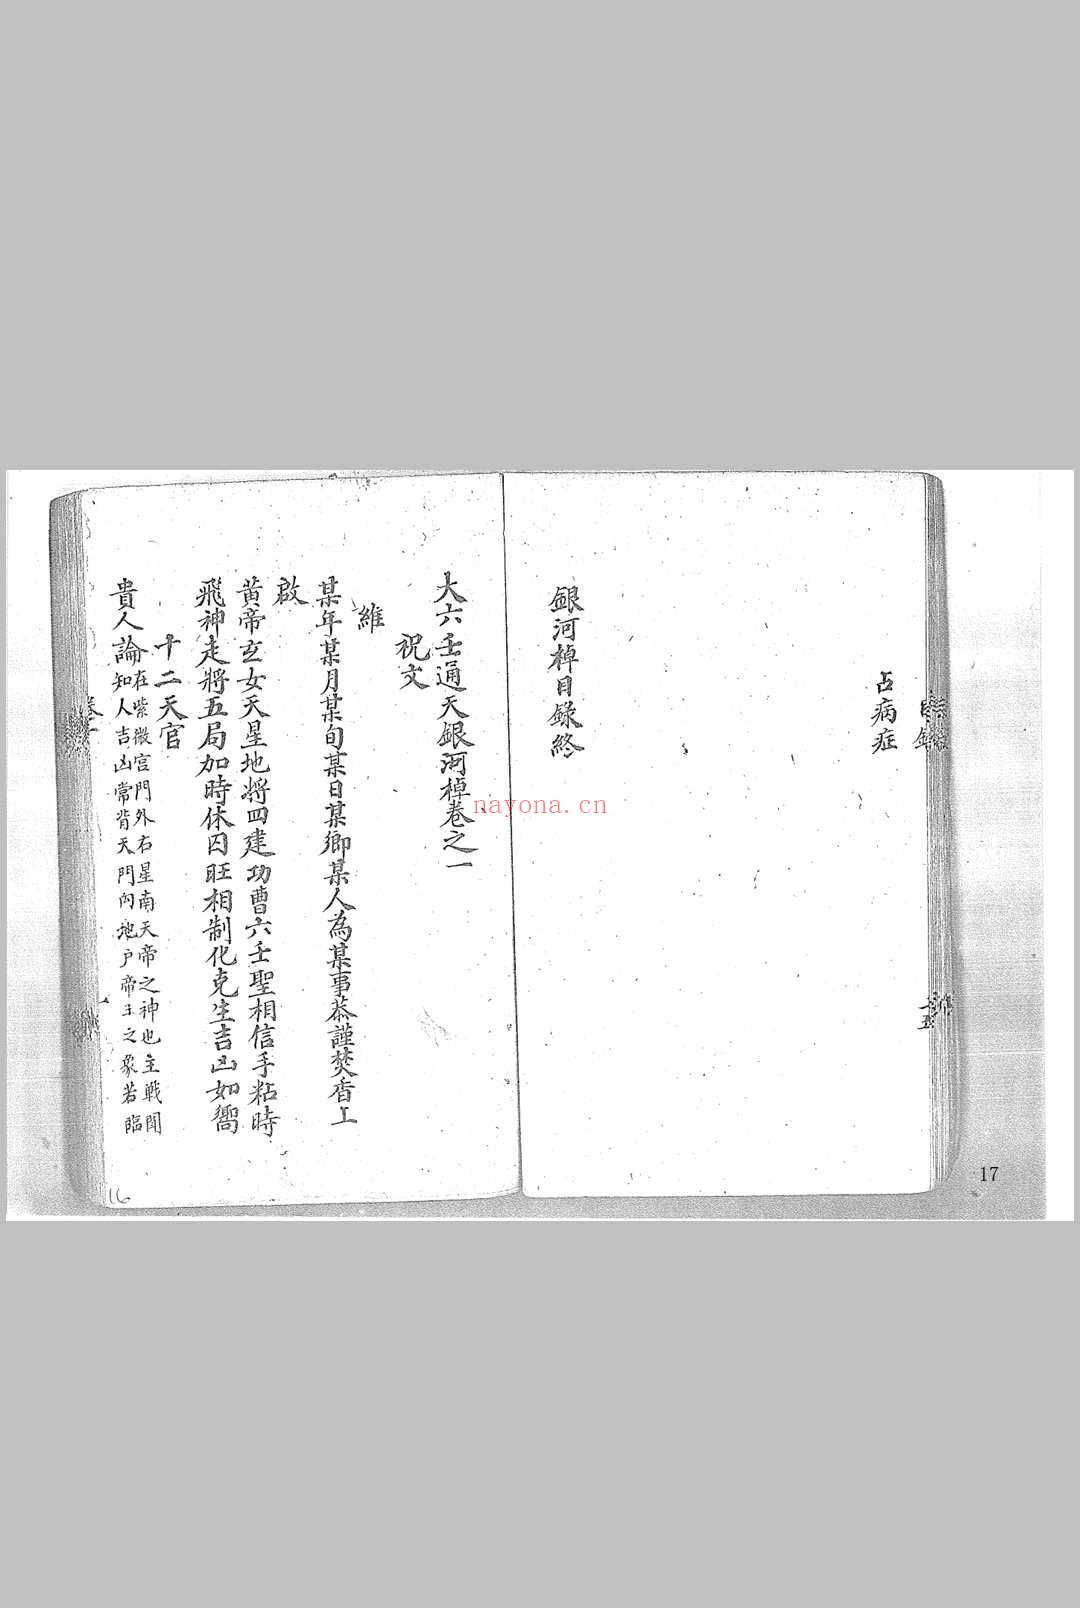 占病症
銀河棹目錄終
大六壬通天銀河棹卷之一
祝文
維
某年某月某旬某日某鄉某人為某事恭謹焚香上
啟
黃帝玄女天星地將四建功曹六壬聖相信手粘時
飛神走將五局加時休囚旺相制化克生吉凶如嚮
十二天官
貴人論在紫微宮門外右星南天帝之神也主戰聞
知人吉凶常背天門向地戶帝王之象若臨
16
17
nayona.cn